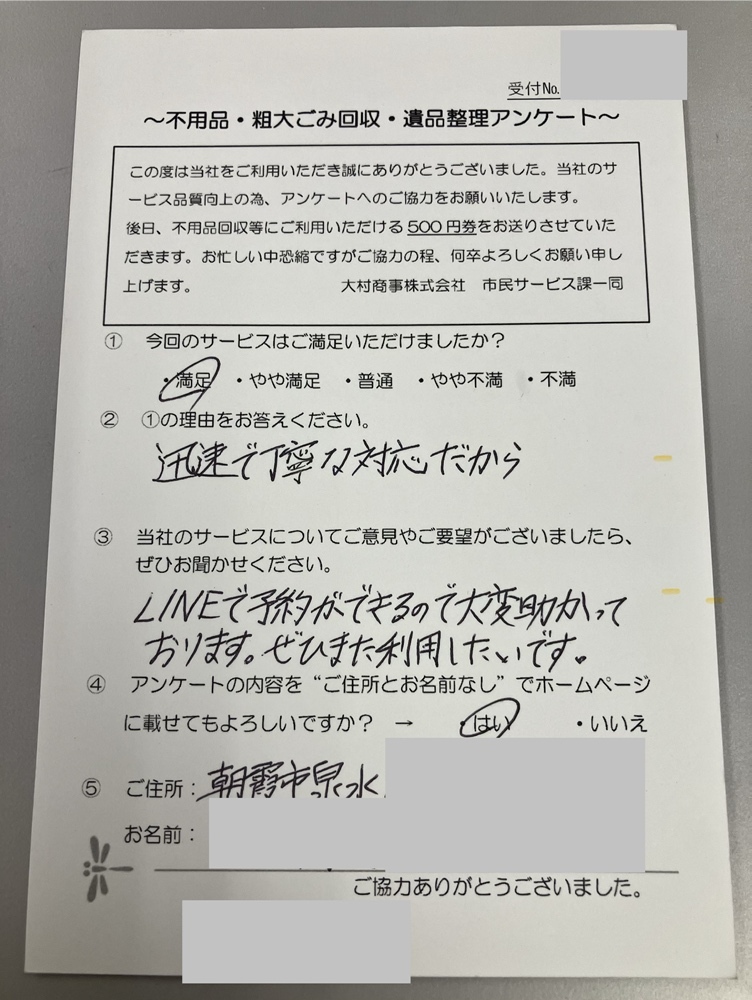 受付No.
～不用品・粗大ごみ回収・遺品整理アンケート～
この度は当社をご利用いただき誠にありがとうございました。当社のサ
ービス品質向上の為、アンケートへのご協力をお願いいたします。
後日、不用品回収等にご利用いただける500円券をお送りさせていた
だきます。お忙しい中恐縮ですがご協力の程、何卒よろしくお願い申し
上げます。 大村商事株式会社 市民サービス課一同
① 今回のサービスはご満足いただけましたか？
・満足 ・やや満足 ・普通 ・やや不満 ・不満
② ①の理由をお答えください。
迅速で丁寧な対応だから
③ 当社のサービスについてご意見やご要望がございましたら、
ぜひお聞かせください。
LINEで予約ができるので大変助かって
おります。ぜひまた利用したいです。
④ アンケートの内容を“ご住所とお名前なし”でホームページ
に載せてもよろしいですか？ → ・はい ・いいえ
⑤ ご住所：朝霞市泉水
お名前：
ご協力ありがとうございました。